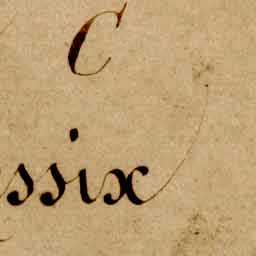 C
ssix